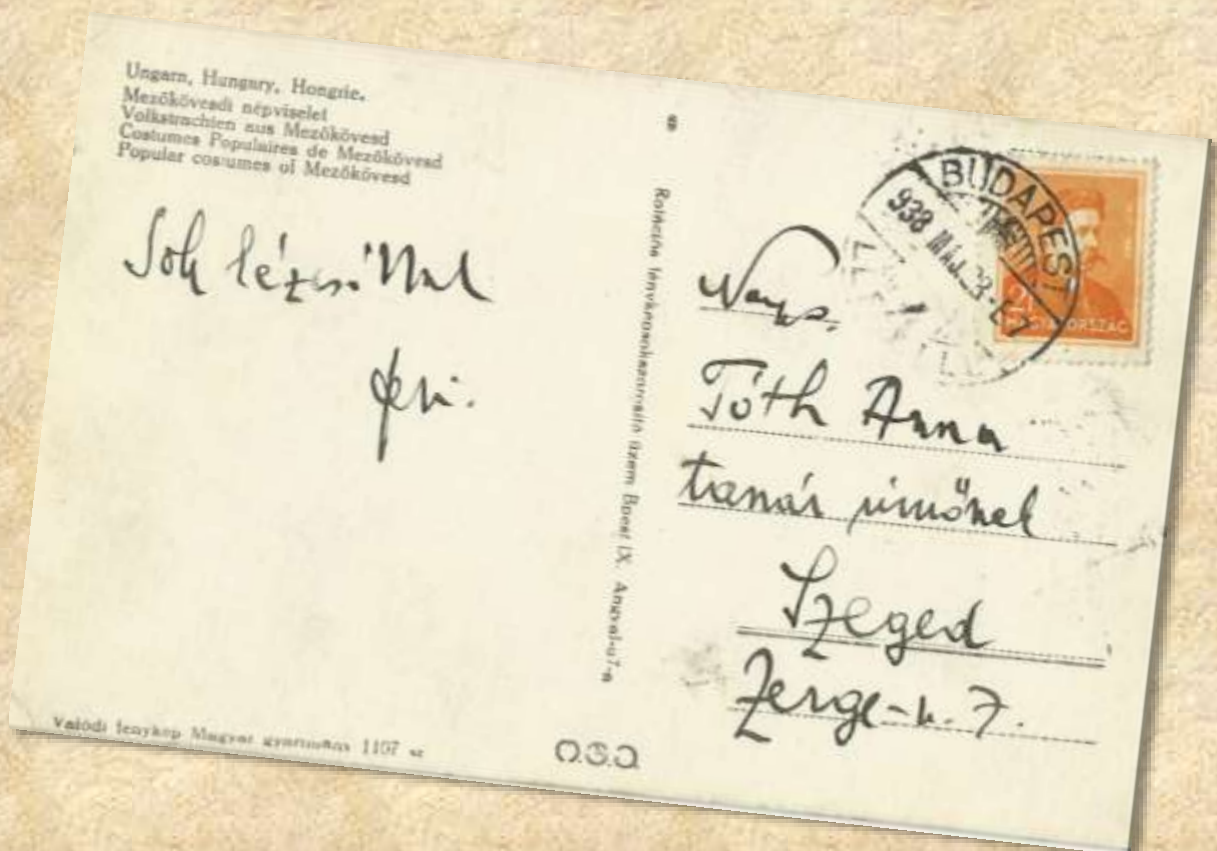 Ungarn, Hungary, Hongrie.
Mezőkövesdi népviselet
Volkstrachten aus Mezőkövesd
Costumes Populaires de Mezőkövesd
Popular costumes of Mezőkövesd
Sok kézcsókkal
Feri.
Rotációs üzem Bpest IX. Angyal-u 7-a
BUDAPEST
938 MÁJ. 23
MAGYARORSZÁG
Nags.
Tóth Anna
tanár úrnőnek
Szeged
Zerge-u. 7.
Valódi fenykép Magyar gyártmány 1107 sz
O.S.O.